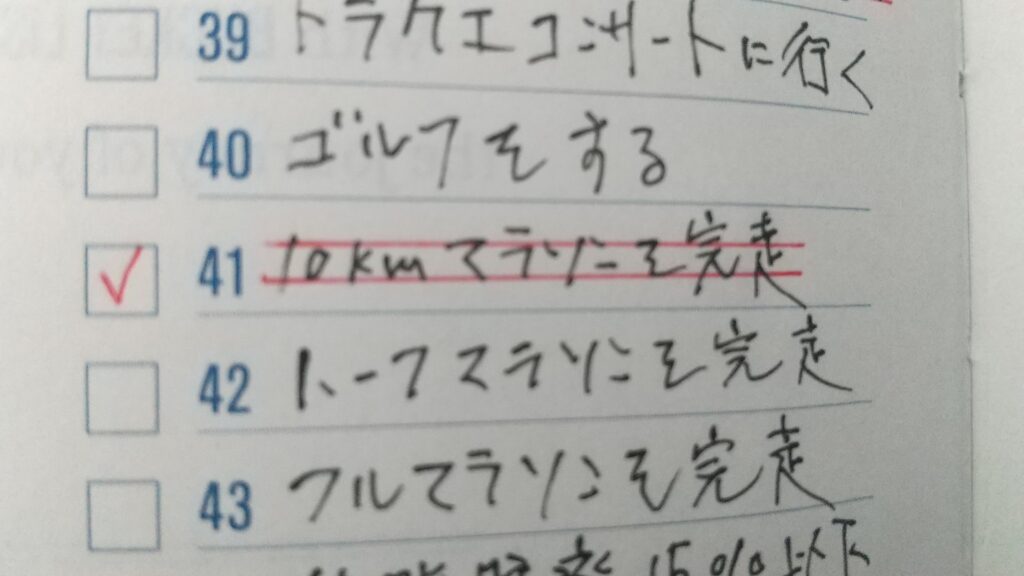 39 ドラクエコンサートに行く
40 ゴルフをする
41 10kmマラソンを完走
42 ハーフマラソンを完走
43 フルマラソンを完走
15%以下